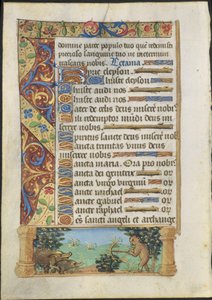 domine parce populo tuo quē redemisti
precioso sanguine tuo ne in eternum
irascaris nobis. Letania.
Kyrie eleyson.
Christe eleyson
Christe audi nos
Pater de celis deus misere nobis
fili redemptor mūdi deus misere
re nobis
Spiritus sancte deus misere nobis
Sancta trinitas vnus deus
miserere nobis
Sancta maria. Ora pro nobis.
Sancta dei genitrix or
Sancta virgo virginū or
Sancte michael or
Sancte gabriel or
Sancte raphael or
Oēs sancti angeli et archange